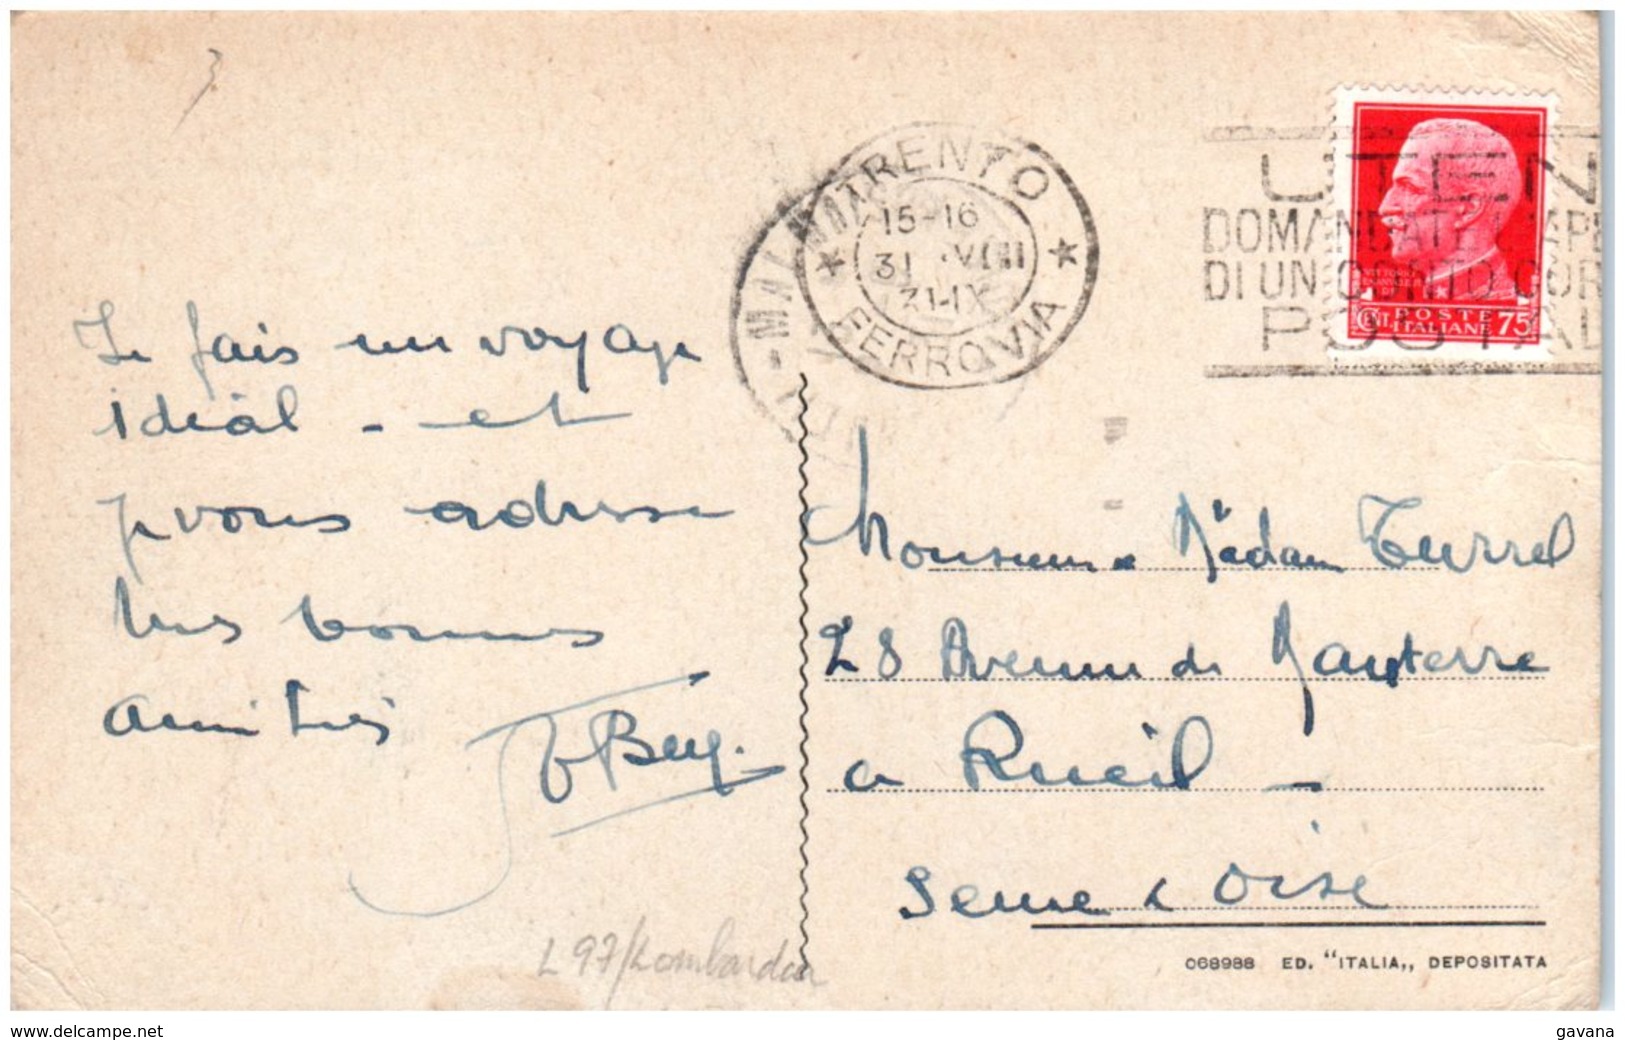 Je fais un voyage
idéal - et
je vous adresse
mes bonnes
amitiés
TRENTO
15-16
31 · VIII
31-IX
FERROVIA
UTEN
DOMANDATE L'APE
DI UN CONTO COR
POSTAL
POSTE
ITALIANE
CENT 75
Monsieur & Madam Turrel
28 Avenue de Nanterre
a Rueil -
Seine & Oise
L97/Lombardia
068988 ED. "ITALIA,, DEPOSITATA
www.delcampe.net
gavana